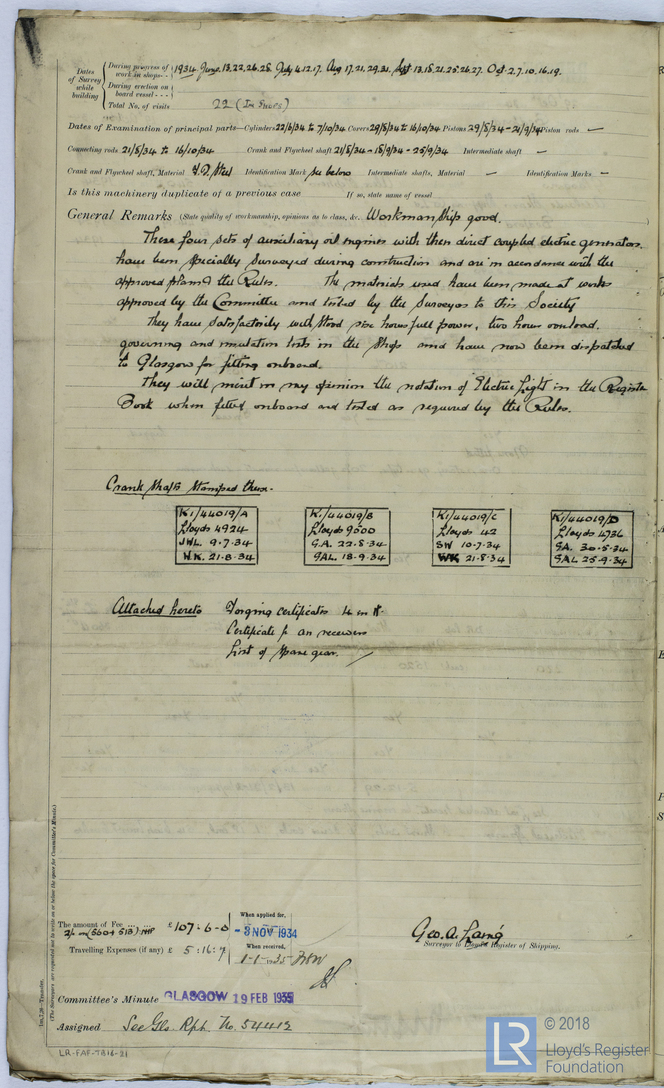 Dates of Survey while building
During progress of work in shops - - 1934 June. 13, 22, 26, 28. July 4. 12. 17. Aug 17. 21. 29. 31. Sept 13. 18. 21. 25. 26. 27. Oct. 2. 7. 10. 16. 19.
During erection on board vessel - - -
Total No. of visits 22 (In Shops)
Dates of Examination of principal parts—Cylinders 22/8/34 to 7/10/34 Covers 29/8/34 to 16/10/34 Pistons 29/8/34 - 21/9/34 Piston rods —
Connecting rods 21/8/34 to 16/10/34 Crank and Flywheel shaft 21/8/34 - 18/9/34 - 25/9/34 Intermediate shaft —
Crank and Flywheel shaft, Material Steel Identification Mark See below Intermediate shafts, Material — Identification Marks —
Is this machinery duplicate of a previous case If so, state name of vessel
General Remarks (State quality of workmanship, opinions as to class, &c. Workmanship good.
These four sets of auxiliary oil engines with their direct coupled electric generators.
have been specially surveyed during construction and are in accordance with the
approved plans & the Rules. The materials used have been made at works
approved by the Committee and tested by the Surveyors to this Society
They have satisfactorily withstood six hours full power, two hours overload,
governing and insulation tests in the shops and have now been dispatched
to Glasgow for fitting onboard.
They will merit in my opinion the notation of Electric Light in the Register
Book when fitted onboard and tested as required by the Rules.
Crank Shafts Stamped thus.
K1/44019/A
Lloyds 4924
JWL. 9.7.34
W.K. 21.8.34
K1/44019/B
Lloyds 9500
G.A. 22.5.34
GAL. 18.9.34
K1/44019/C
Lloyds 42
SW 10.7.34
WK 21.8.34
K1/44019/D
Lloyds 4736
GA. 30.5.34
GAL 25.9.34
Attached hereto Forging certificates 4 in No.
Certificate for air receivers
List of spare gear.
The amount of Fee ... ... £107:6-0
When applied for,
-8 NOV 1934
Travelling Expenses (if any) £ 5:16:7
When received,
1-1-1935
Geo. A. Laing
Surveyor to Lloyd's Register of Shipping.
Committee's Minute GLASGOW 19 FEB 1935
Assigned See Gls. Rpt. No. 54412
(The Surveyors are requested not to write on or below the space for Committee's Minute.)
LR-FAF-7816-21
LR
© 2018
Lloyd's Register
Foundation